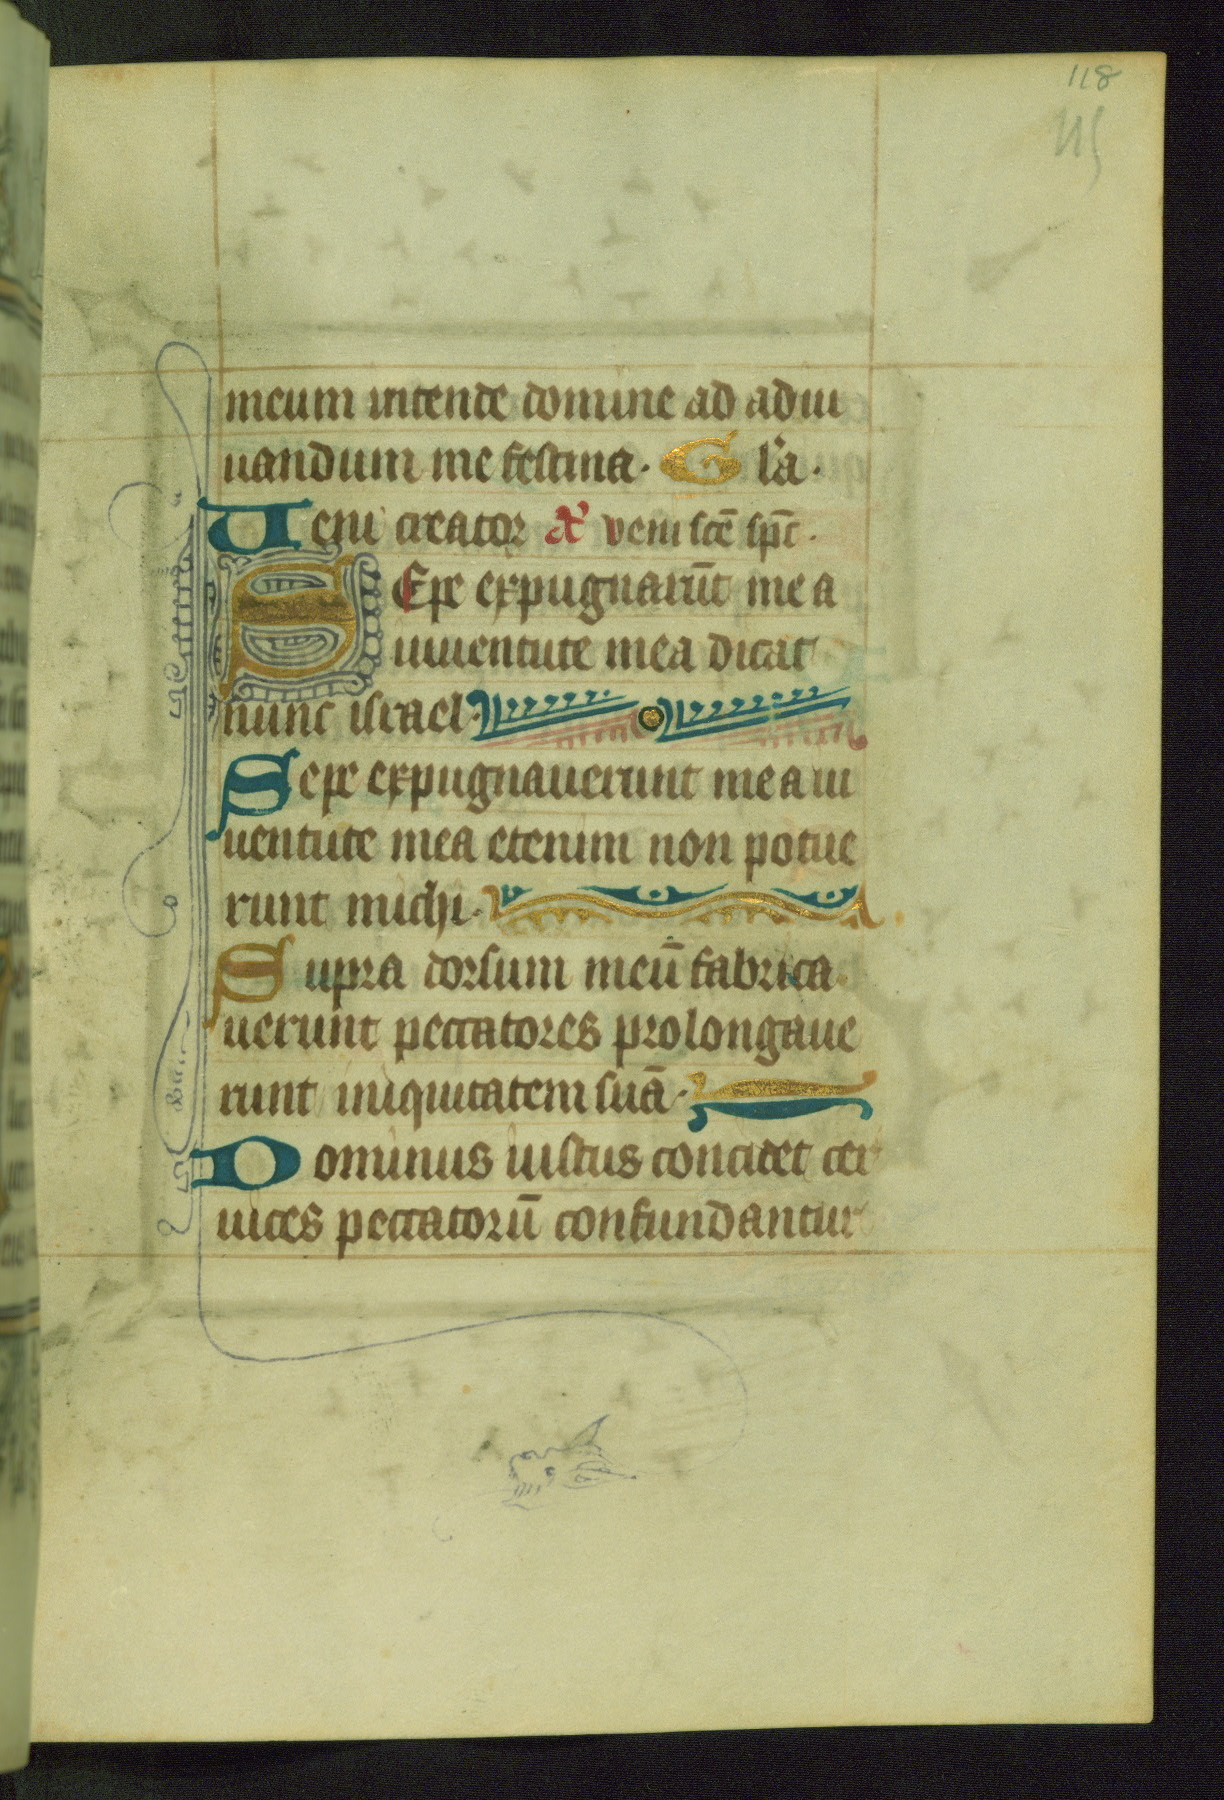 118
115
meum intende domine ad adiu
uandum me festina. Gla.
Ueni creator A' veni scē spc̄.
SEpe expugnarūt me a
iuuentute mea dicat
nunc israel.
Sepe expugnauerunt me a iu
uentute mea etenim non potue
runt michi.
Supra dorsum meū fabrica
uerunt peccatores prolongaue
runt iniquitatem suā.
Dominus iustus concidet cer
uices peccatorū confundantur